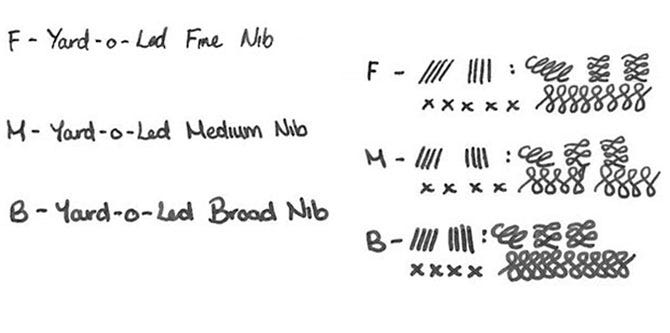 F - Yard-o-Led Fine Nib
M - Yard-o-Led Medium Nib
B - Yard-o-Led Broad Nib
F - //// |||| :
x x x x x
M - //// |||| :
x x x x
B - //// |||| :
x x x x